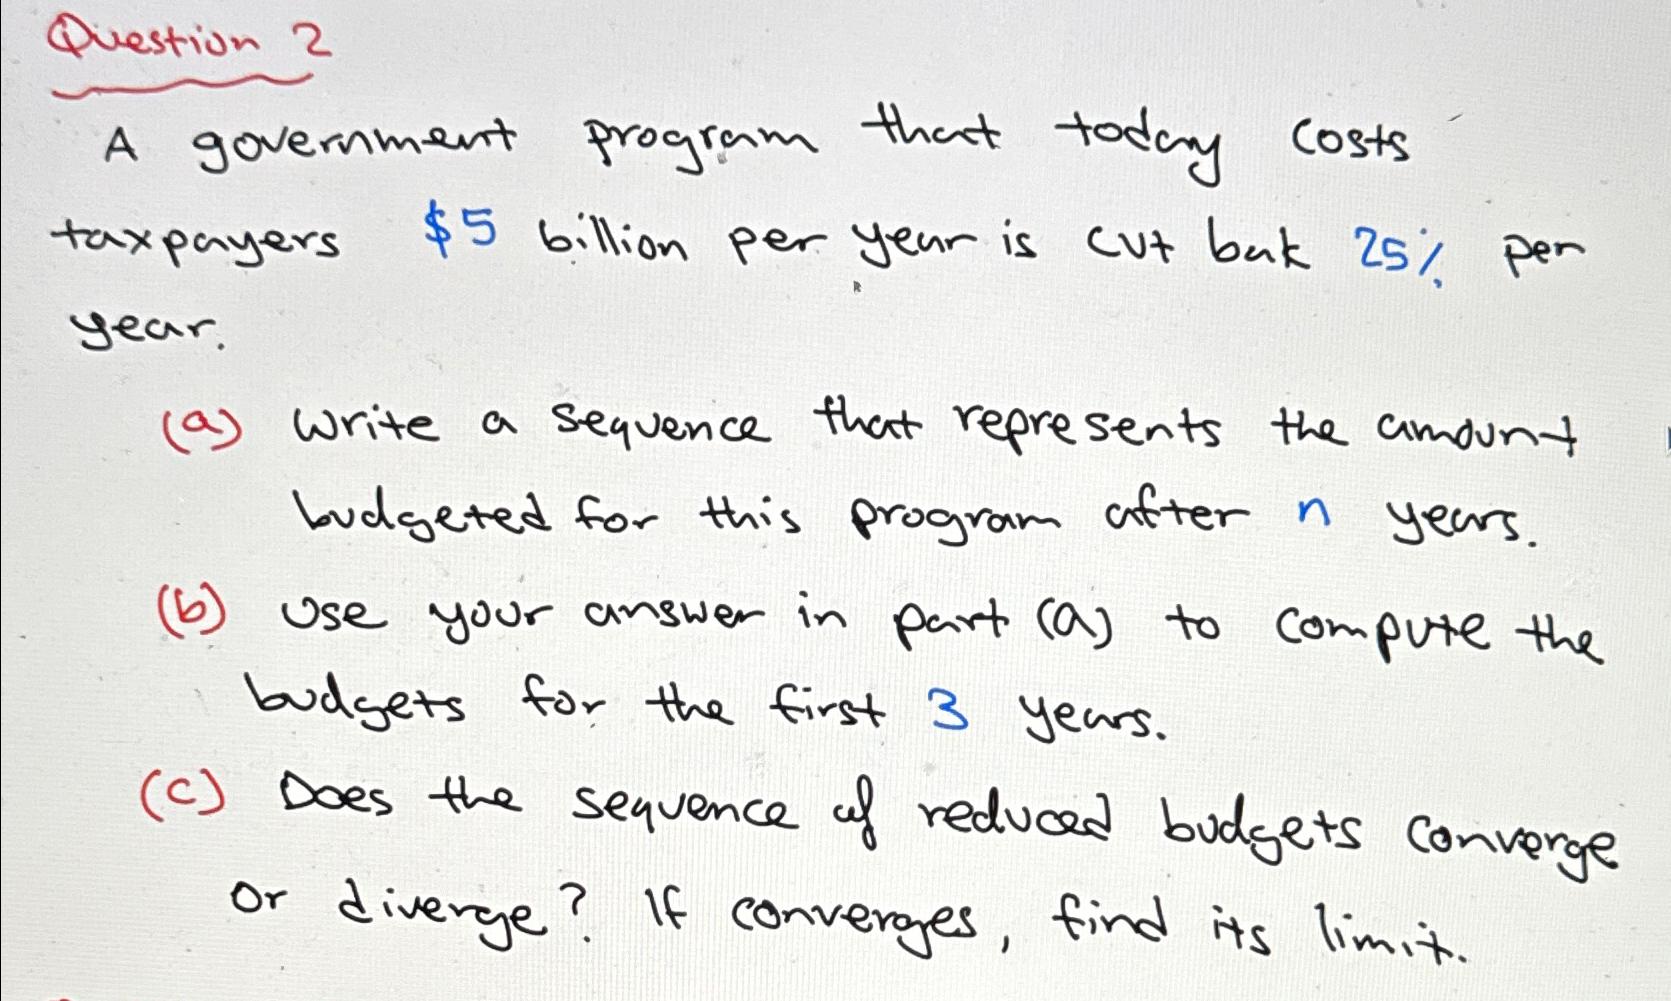 Question 2
A government program that today costs
taxpayers $5 billion per year is cut bak 25% per
year.
(a) Write a sequence that represents the amount
budgeted for this program after n years.
(b) Use your answer in part (a) to compute the
budgets for the first 3 years.
(c) Does the sequence of reduced budgets converge
or diverge? If converges, find its limit.